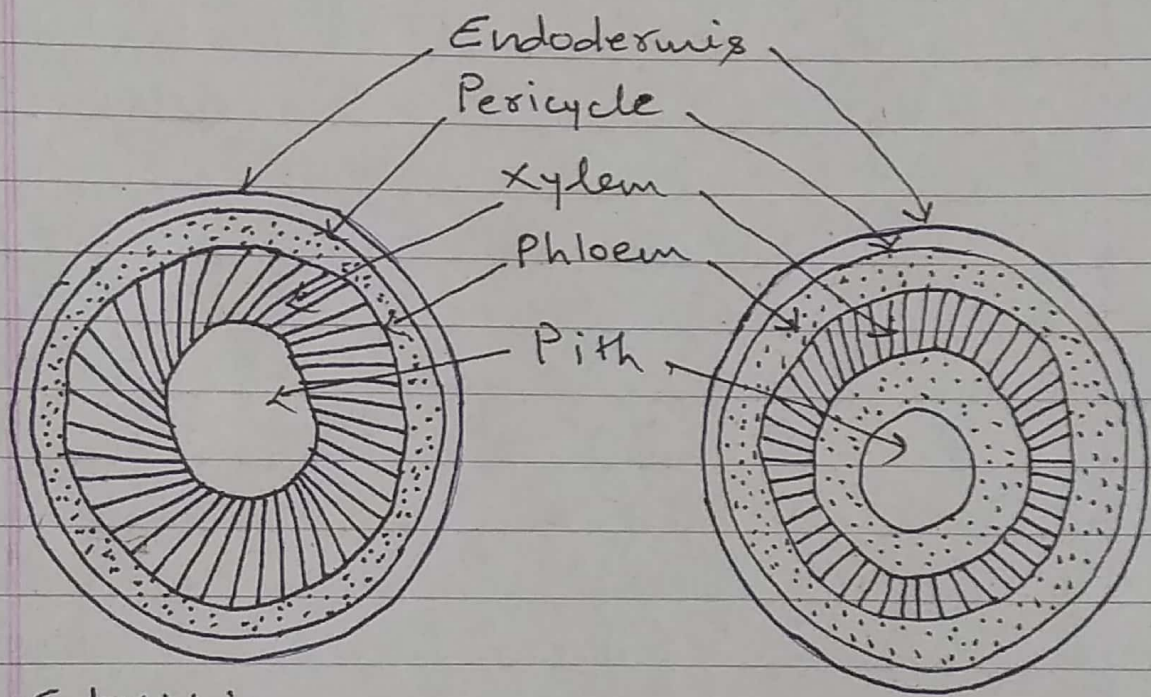 Endodermis
Pericycle
Xylem
Phloem
Pith